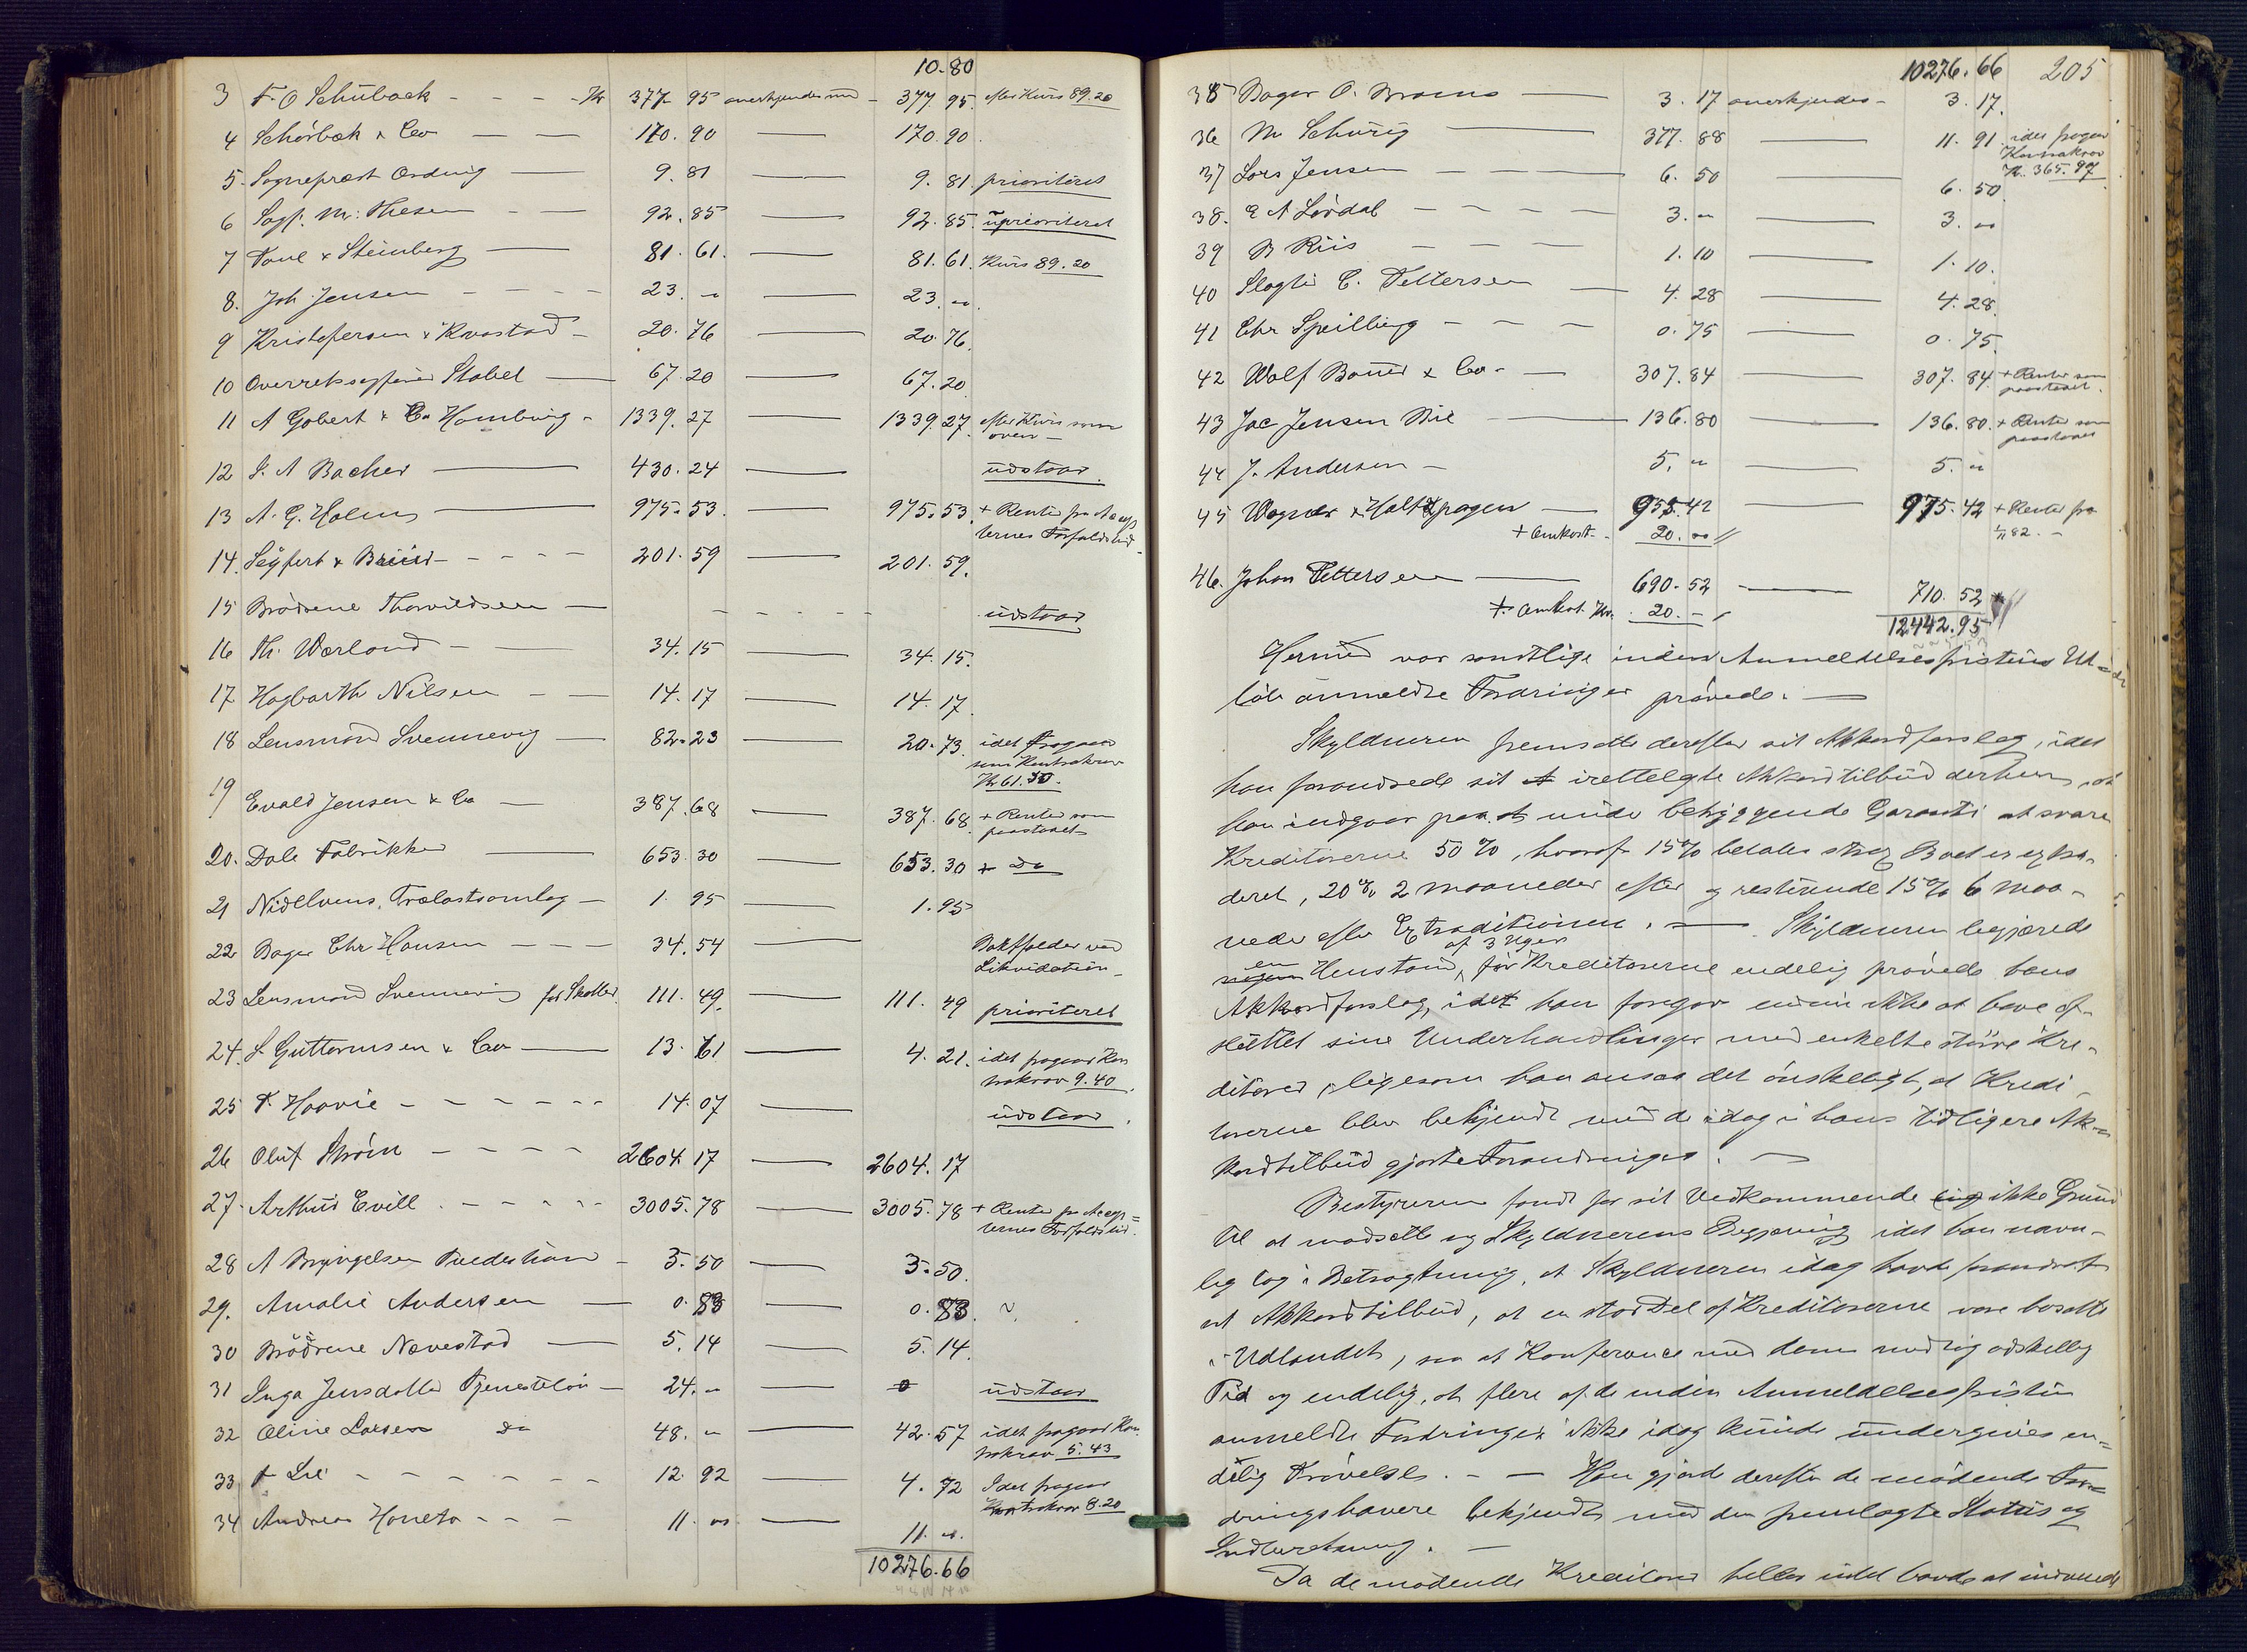 10.80
3 F. O Schüback - - - - Kr 377. 95 anerkjendes med - 377. 95. efter Kurs 89.20
4 Schörbæk & Co — — 170. 90 — 170. 90.
5. Sogneprest Ording — 9. 81 — 9. 81. prioriteret
6 Sagf. M. Thesen - — 92. 85 — 92. 85. uprioriteret
7 Paul & Steinberg — 81. 61. — 81. 61. Kurs 89.20
8. Joh Jensen - - - - 23. „ — 23. „
9 Kristofersen & Kvastad - 20. 76 — 20. 76.
10 Overretssagfører Stabel — 67. 20 — 67. 20
11 A Gobert & Co Hamburg - 1339. 27 — 1339. 27. efter Kurs som
oven —
12 S. A Backer — 430. 24 — udstaar.
13 A. G. Holm — 975. 53. — 975. 53. + Renter fra Accep
ternes Forfaldstid -
14. Seyfert & - - - - 201. 59 — 201. 59.
15 Brødrene Thorvildsen — - - - - udstaar
16 Th. Værland - — 34. 15 — 34. 15.
17 Hagbarth Nilsen - - 14. 17 — 14. 17.
18 Lensmand Svennevig — 82. 23 — 20. 73. idet fragaar
som Kontrakrav
Kr 61.50.
19 Evald Jensen & Co — 387. 68 — 387. 68. + Renter som
paastaaet
20. Dale Fabrikker — 653. 30 — 653. 30 + Do
21 Nidelvens Trælastsomlag — 1. 95 — 1. 95
22 Bager Chr Hansen - - - 34. 54 — Bortfalder ved
Likvidation -
23 Lensmand Svennevig for Skatter. 111. 49. — 111. 49 prioriteret
24. S. Guttormsen & Co — 13. 61 — 4. 21. idet fragaar Kon
trakrav 9.40.
25 T. Haavie - - - - - - 14. 07 — udstaar.
26 Oluf Strøm - - - - 2604. 17 — 2604. 17
27. Arthur Evill. - - - - - 3005. 78 — 3005. 78 + Renter fra Accep=
ternes Forfaldstid.
28 A Bryngelsen Tvedestrand - 3. 50 — 3. 50.
29. Amalie Andersen — 0. 83 — 0. 83.
30 Brødrene Nævestad — 5. 14 — 5. 14.
31 Inga Jensdatter Tjenesteløn - 24. „ — 0 udstaar
32 Oline Larsen do 48. „ — 42. 57 idet fragaar Kon
trakrav 5.43
33 Lie - - - - - - 12. 92 — 4. 72 Idet fragaar
Kontrakrav 8.20
34 Andreas Haneto - - - 11. „ — 11. „.
10276.66
10276.66 205
35 Bager O. Brams — 3. 17 anerkjendes - 3. 17.
36 M. Schurig — 377. 88 — 11. 91. idet fragaar
Kontrakrav
Kr. 365.97
37 Lars Jensen - - - — 6. 50 — 6. 50.
38. E A Lövdal - - - - 3. „ — 3. „
39 B Riis - - - 1. 10 — 1. 10.
40 Slagter C. Pettersen — 4. 28 — 4. 28.
41 Chr Speilberg - - - 0. 75 — 0. 75.
42 Wolf Bauer & Co - — 307. 84 — 307. 84. + Renter som
paastaaet.
43 Jac Jensen Bie — 136. 80 — 136. 80. + Renter som
paastaaet
44 J. Andersen - 5. „ — 5. „
45 Wagner & — 955. 42 — 975. 42 + Renter fra
1/11 82. -
+ Omkost. - 20. „ //
46. Johan Pettersen — 690. 52 — 710. 52
+ Omkost. Kr. 20. - /
12442.95
Hermed var samtlige inden Anmeldelsesfristens Ud=
løb anmeldte Fordringer prøvede. —
Skyldneren fremsatte derefter sit Akkordforslag, idet
han forandrede sit irettelagte Akkordtilbud derhen, at
han indgaar paa at under betryggende Garanti at svare
Kreditorerne 50 %, hvoraf 15% betales strax Boet er extra-
deret, 20 %, 2 maaneder efter og resterende 15 % 6 maa-
neder efter Extraditionen. — Skyldneren begjærede
en af 3 Uger
nogen Henstand, før Kreditorerne endelig prøvede hans
Akkordforslag, idet han foregav endnu ikke at have af-
sluttet sine Underhandlinger med enkelte større Kre-
ditorer, ligesom han ansaa det ønskeligt, at Kredi-
torerne blev bekjendt med de idag i hans tidligere Ak=
kordtilbud gjorte Forandringer. —
Bestyreren fandt for sit Vedkommende ikke Grund
til at modsætte sig Skyldnerens Begjæring idet han navn-
lig tog i Betragtning, at Skyldneren idag havde forandret
sit Akkordtilbud, at en stor Del af Kreditorerne vare bosatte
i Udlandet, saa at Konferance med dem medtog adskillig
Tid og endelig, at flere af de inden Anmeldelsesfristen
anmeldte Fordringer ikke idag kunde undergives en=
delig Prøvelse. - — Han gjorde derefter de mødende For=
dringshavere bekjendt med den fremlagte Status og
Indberetning. —
Da de mødende Kreditorer heller intet havde at indvende